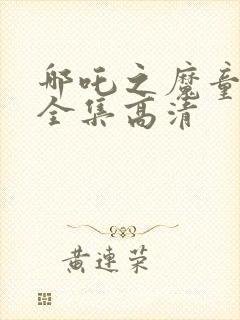 哪吒之魔童
全集高清
黄连荣